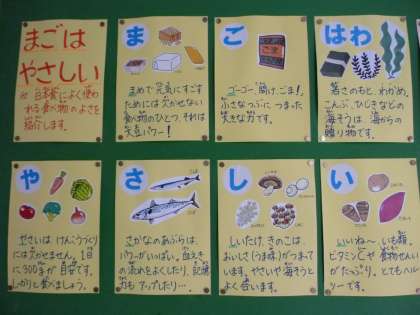 まごは
やさしい
※日本食によく使わ
れる食べ物のよさを
紹介します。
ま
まめで元気にすごす
ためには欠かせない
食べ物のひとつ、それは
大豆パワー!
こ
ごま
ゴーゴー、開け、ごま!
小さなつぶにつまった
大きな力です。
はわ
若さのもと、わかめ、
こんぶ、ひじきなどの
海そうは、海からの
贈り物です。
や
やさいは、けんこうづくり
には欠かせません。1日
に300gが目安です。
しっかりと食べましょう。
さ
さかなのあぶらは、
パワーがいっぱい。血えき
の流れをよくしたり、記憶
力もアップしたり…。
し
しいたけ、きのこは、
おいしさ(うま味)がつまって
います。やさいや海そうと
よく合います。
い
いいね〜、いも類。
ビタミンCや食物せんい
がたっぷり。とてもヘル
シーです。